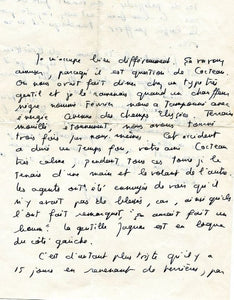 Je m'occupe bien différemment. En voyons
puisqu'il est question de Cocteau.
On nous avait fait dîner chez un type très
gentil et je le ramenais quand un chauffeur
nommé Février nous a tamponnés avec
énergie Avenue des Champs Elysées. Terrain
mouillé, étonnement, nous avons tourné
trois fois sur nous-mêmes. Cet incident
a duré un temps fou, votre ami Cocteau
très calme, pendant tous ces tours je le
tenais d'une main et le volant de l'autre.
les agents ont été ennuyés de voir qu'il
n'y avait pas de blessés, car, ainsi qu'ils
l'ont fait remarquer, "ça aurait fait un
La gentille Jaguar est en loques
du côté gauche.
C'est d'autant plus triste qu'il y a
15 jours en revenant de Verrières, par